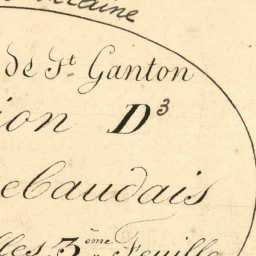 de St. Ganton
ion D3
ebaudais
lles 3.ème Feuille